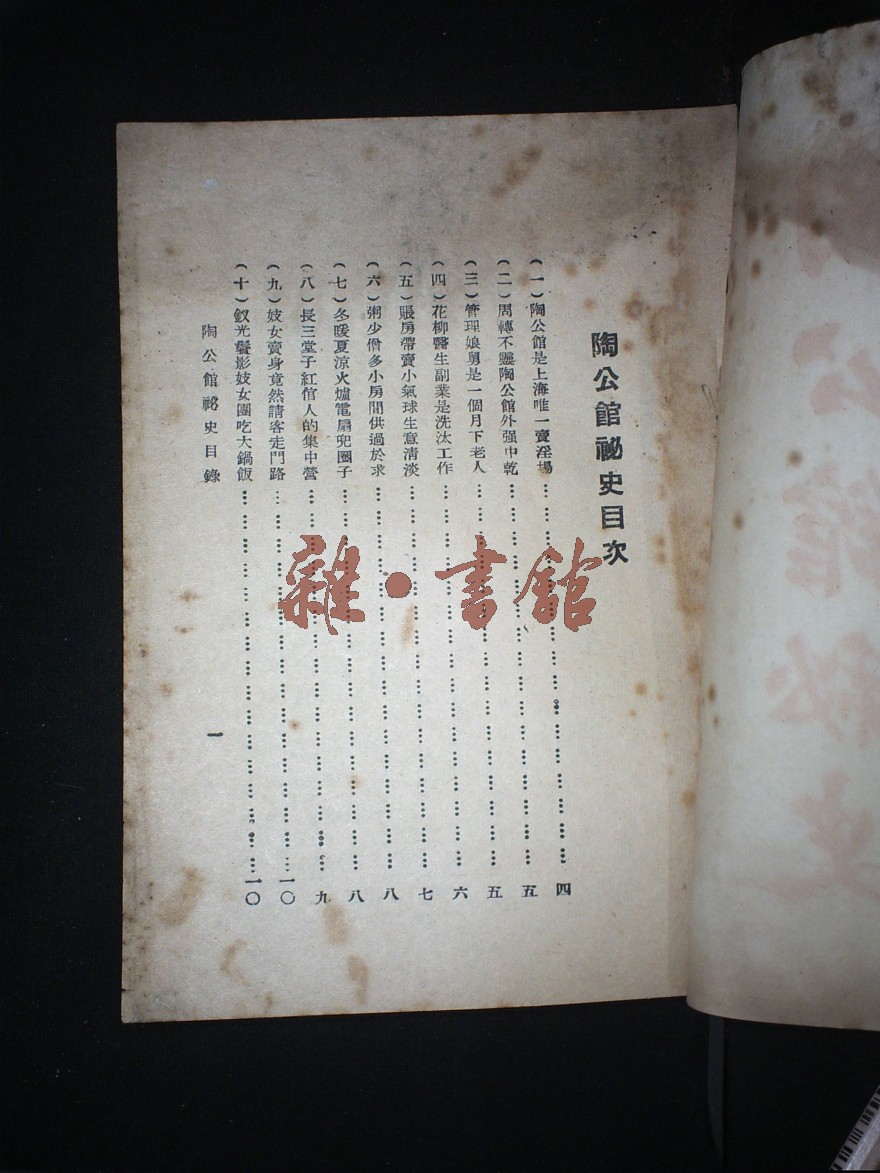 陶公館祕史目次
（一）陶公館是上海唯一賣淫場………………………………四
（二）周轉不靈陶公館外强中乾………………………………五
（三）管理娘舅是一個月下老人………………………………五
（四）花柳醫生副業是洗汰工作………………………………六
（五）賬房帶賣小氣球生意清淡………………………………七
（六）粥少僧多小房間供過於求………………………………八
（七）冬暖夏涼火爐電扇兜圈子………………………………八
（八）長三堂子紅倌人的集中營………………………………九
（九）妓女賣身竟然請客走門路………………………………一〇
（十）釵光鬢影妓女團吃大鍋飯………………………………一〇
陶公館祕史目錄
一
雜·書館